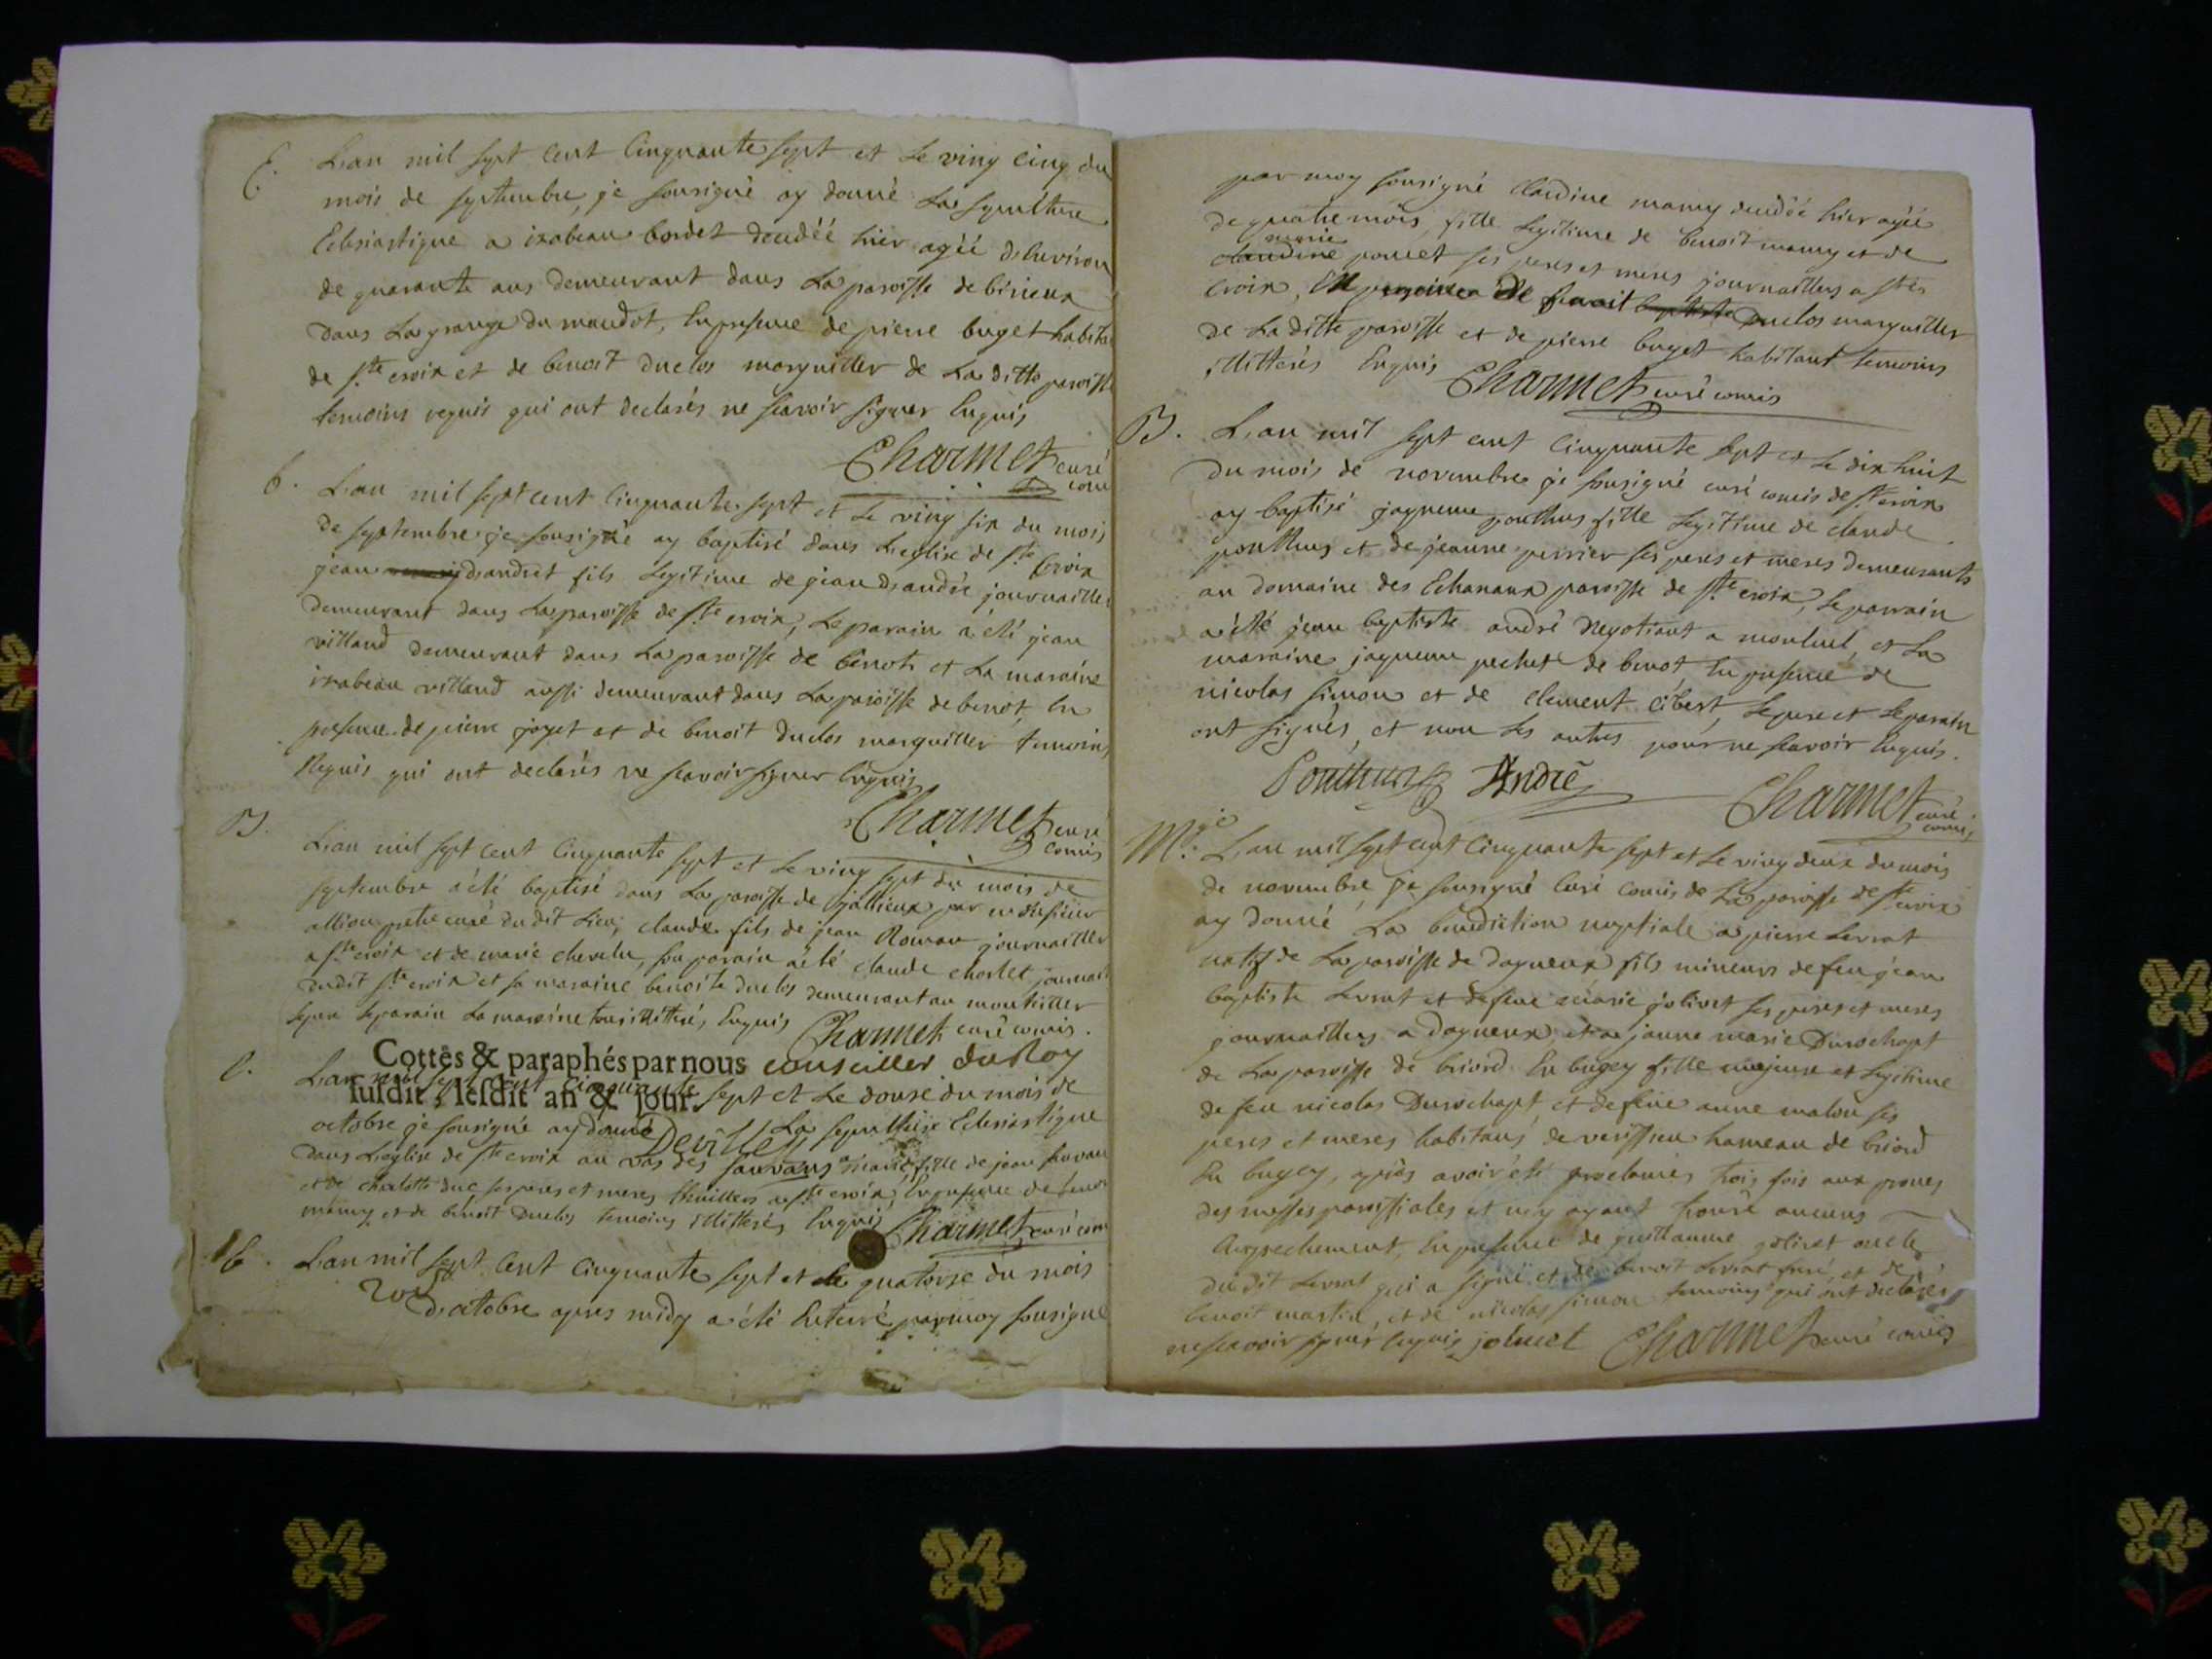 E. L'an mil sept cent cinquante sept et le ving cinq du
mois de septembre, je sousigné ay donné la sepulture
Eclesiastique a izabeau bordet decédéé hier agéé d'environ
de quarante ans demeurant dans la paroisse de birieux
dans la grange du mandot, en presence de pierre buget habitant
de ste croix et de benoit duclos marguillier de la ditte paroisse
temoins requis qui ont declarés ne scavoir signer enquis
Charmet curé
comis
b. L'an mil sept cent cinquante sept et le ving six du mois
de septembre je sousigné ay baptisé dans l'eglise de ste Croix
jean d'andret fils legitime de jean d'andré journaillier
demeurant dans la paroisse de ste croix, le parain a été jean
villand demeurant dans la paroisse de benot et la maraine
izabeau villand aussi demeurant dans la paroisse de benot, en
presence de pierre jozet et de benoit duclos marguillier temoins
Requis qui ont declarés ne scavoir signer enquis
Charmet curé
comis
B. L'an mil sept cent cinquante sept et le ving sept du mois de
septembre a été baptisé dans la paroisse de jallieux par messieur
allion pretre curé du dit lieu, claude fils de jean Roman journaillier
a ste croix et de marie chevelu, son parain a été claude chorlet journail
dudit ste croix et sa maraine benoite duclos demeurant au montellier
le pere le parain la maraine tous illitteré, enquis Charmet curé comis.
Cottés & paraphés par nous conseiller du Roy
susdit, lesdit an & jour.
Deville
E. L'an mil sept cent cinquante sept et le douse du mois de
octobre je sousigné ay donné la sepulture Eclesiastique
dans l'eglise de ste croix au vas des sauvans a marie fille de jean sauvan
et de charlotte duc ses peres et meres thuilliers a ste croix, en presence de benoit
mamy et de benoit duclos temoins illitterés enquis Charmet curé comis
E. L'an mil sept cent cinquante sept et le quatorse du mois
d'octobre apres midy a été enterré par moy sousigné
par moy sousigné claudine mamy decédéé hier agéé
de quatre mois, fille legitime de benoit mamy et de
marie
claudine poncet ses peres et meres journailliers a ste
croix, en presence de benoit baptiste duclos marguillier
de la ditte paroisse et de pierre buget habitant temoins
illitterés enquis
Charmet curé comis
B. L'an mil sept cent cinquante sept et le dix huit
du mois de novembre je sousigné curé comis de ste croix
ay baptisé jaqueme ponthus fille legitime de claude
ponthus et de jeanne perrier ses peres et meres demeurants
au domaine des Echanaux paroisse de ste croix, le parrain
a été jean baptiste andré negotiant a monluel, et la
maraine jaqueme pechet de benot, en presence de
nicolas simon et de clement cibert, le pere et le parain
ont signés, et non les autres pour ne scavoir enquis.
Ponthus André
Charmet curé
comis
M.ge L'an mil sept cent cinquante sept et le ving deux du mois
de novembre, je sousigné curé comis de la paroisse de ste croix
ay donné la benediction nuptiale a pierre levrat
natif de la paroisse de dagneux fils mineurs de feu jean
baptiste levrat et de feue marie jolivet ses peres et meres
journailliers a dagneux, et a jeanne marie Durochapt
de la paroisse de briord en bugey fille majeure et legitime
de feu nicolas Durochapt et de feue anne malou ses
peres et meres habitans de verissieu hameau de briord
en bugey, après avoir été proclamés trois fois aux prones
des messes paroissiales et n'y ayant trouvé aucuns
empechement, en presence de guillaume jolivet oncle
du dit levrat qui a signé et de benoit levrat frere, et de
benoit martin, et de nicolas simon temoins qui ont declarés
ne scavoir signer enquis jolivet Charmet curé comis